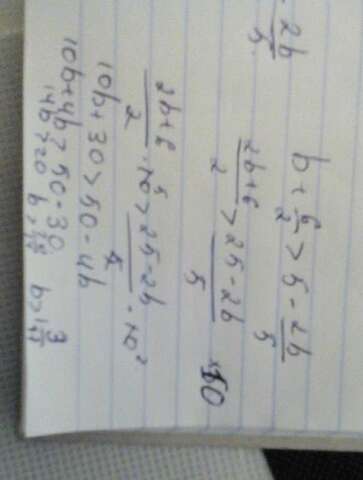 2b/5
b + 6/2 > 5 - 2b/5
(2b+6)/2 > (25-2b)/5 ×10
(2b+6)/2 · 10⁵ > (25-2b)/5 · 10²
10b+30 > 50-4b
10b+4b > 50-30
14b > 20 b > b > 1 3/7